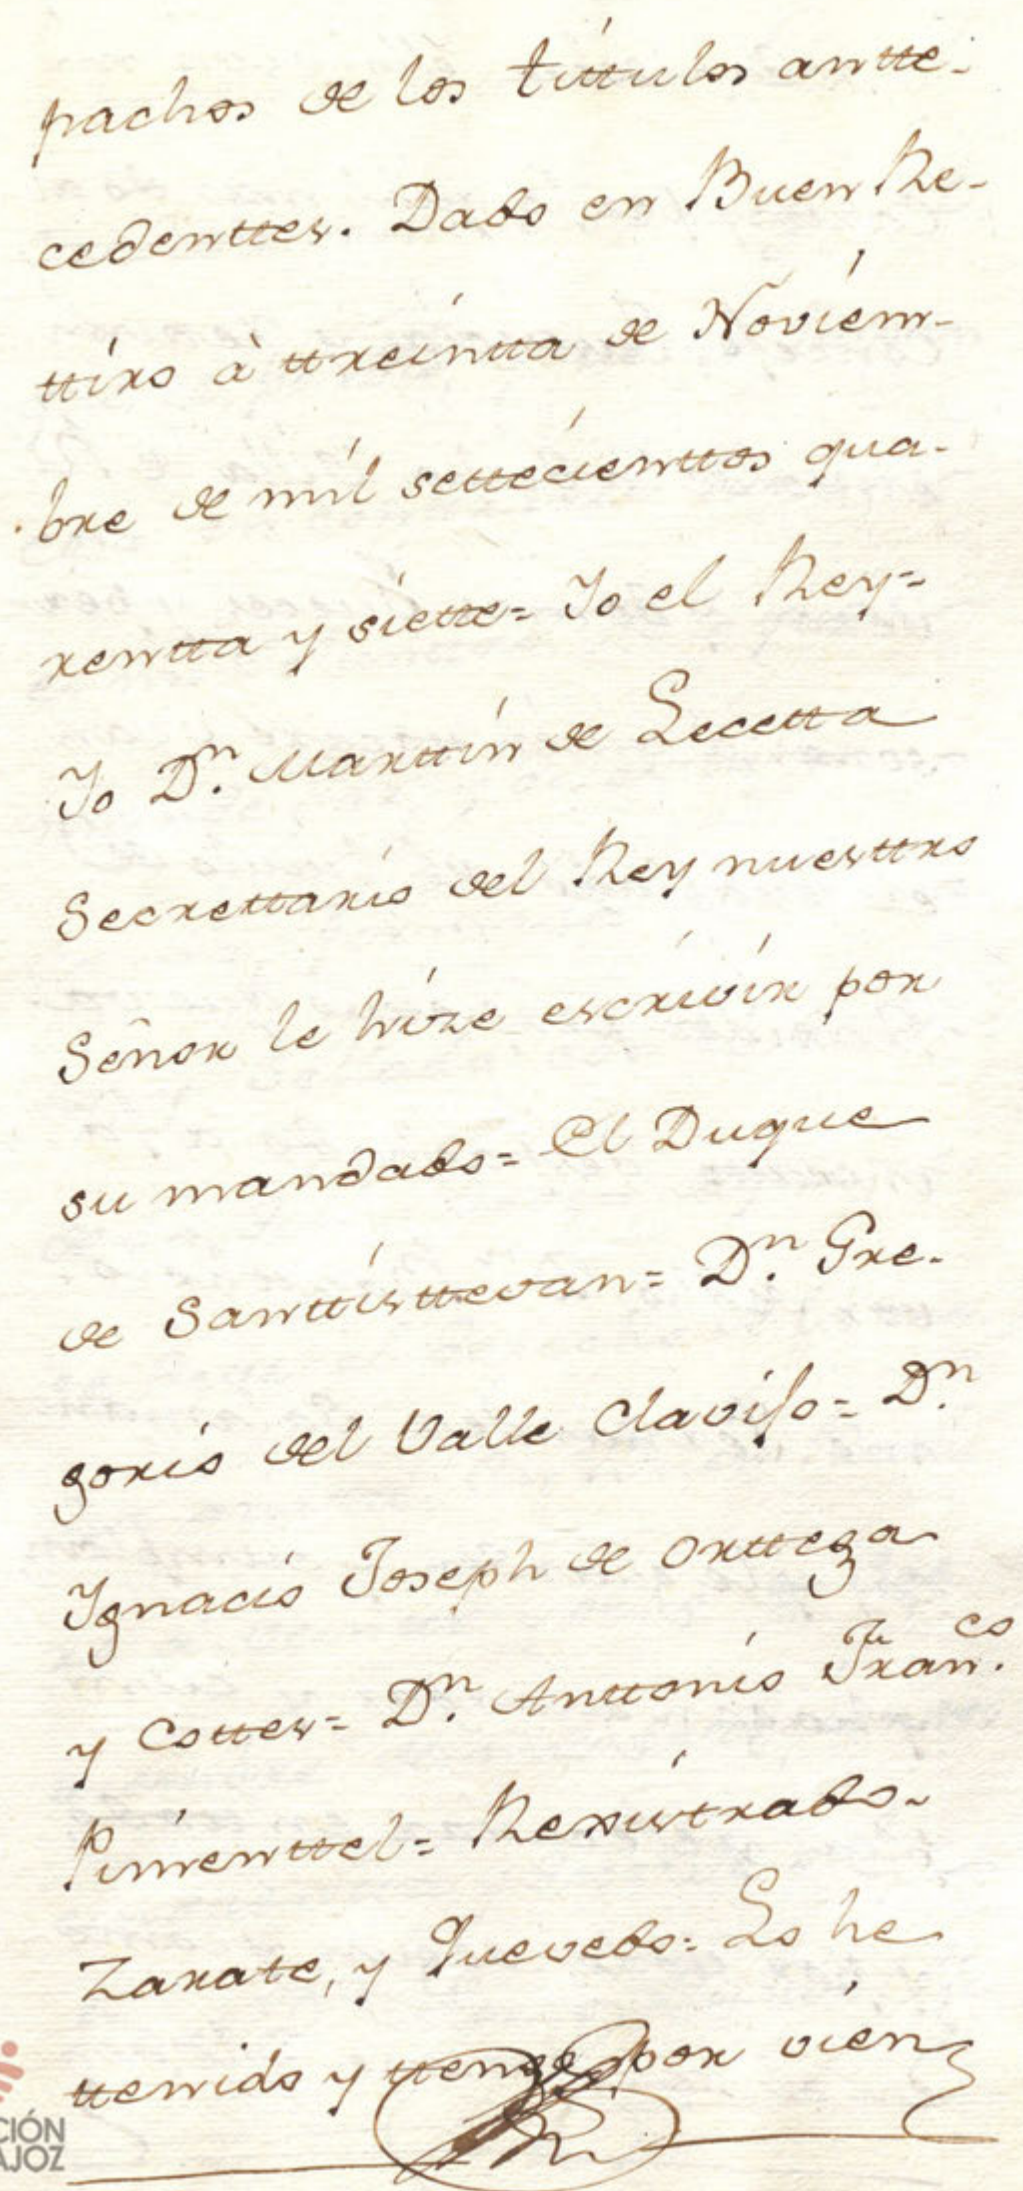 pachos de los títtulos antte-
cedenttes. Dado en Buen Re-
ttiro à ttreintta de Noviem-
bre de mil settecienttos qua-
rentta y siette= Yo el Rey=
Yo Dⁿ. Marttin de Lecetta
Secrettario del Rey nuesttro
Señor le hize escrivir por
su mandado= El Duque
de Santtisttevan= Dⁿ. Gre-
gorio del Valle Clavijo= Dⁿ.
Ignacio Joseph de Orttega
y Cottes= Dⁿ. Anttonio Franᶜᵒ.
Pimenttel= Rexistrado-
Zarate, y Quevedo= Lo he
ttenido y ttengo por vien
CIÓN
AJOZ